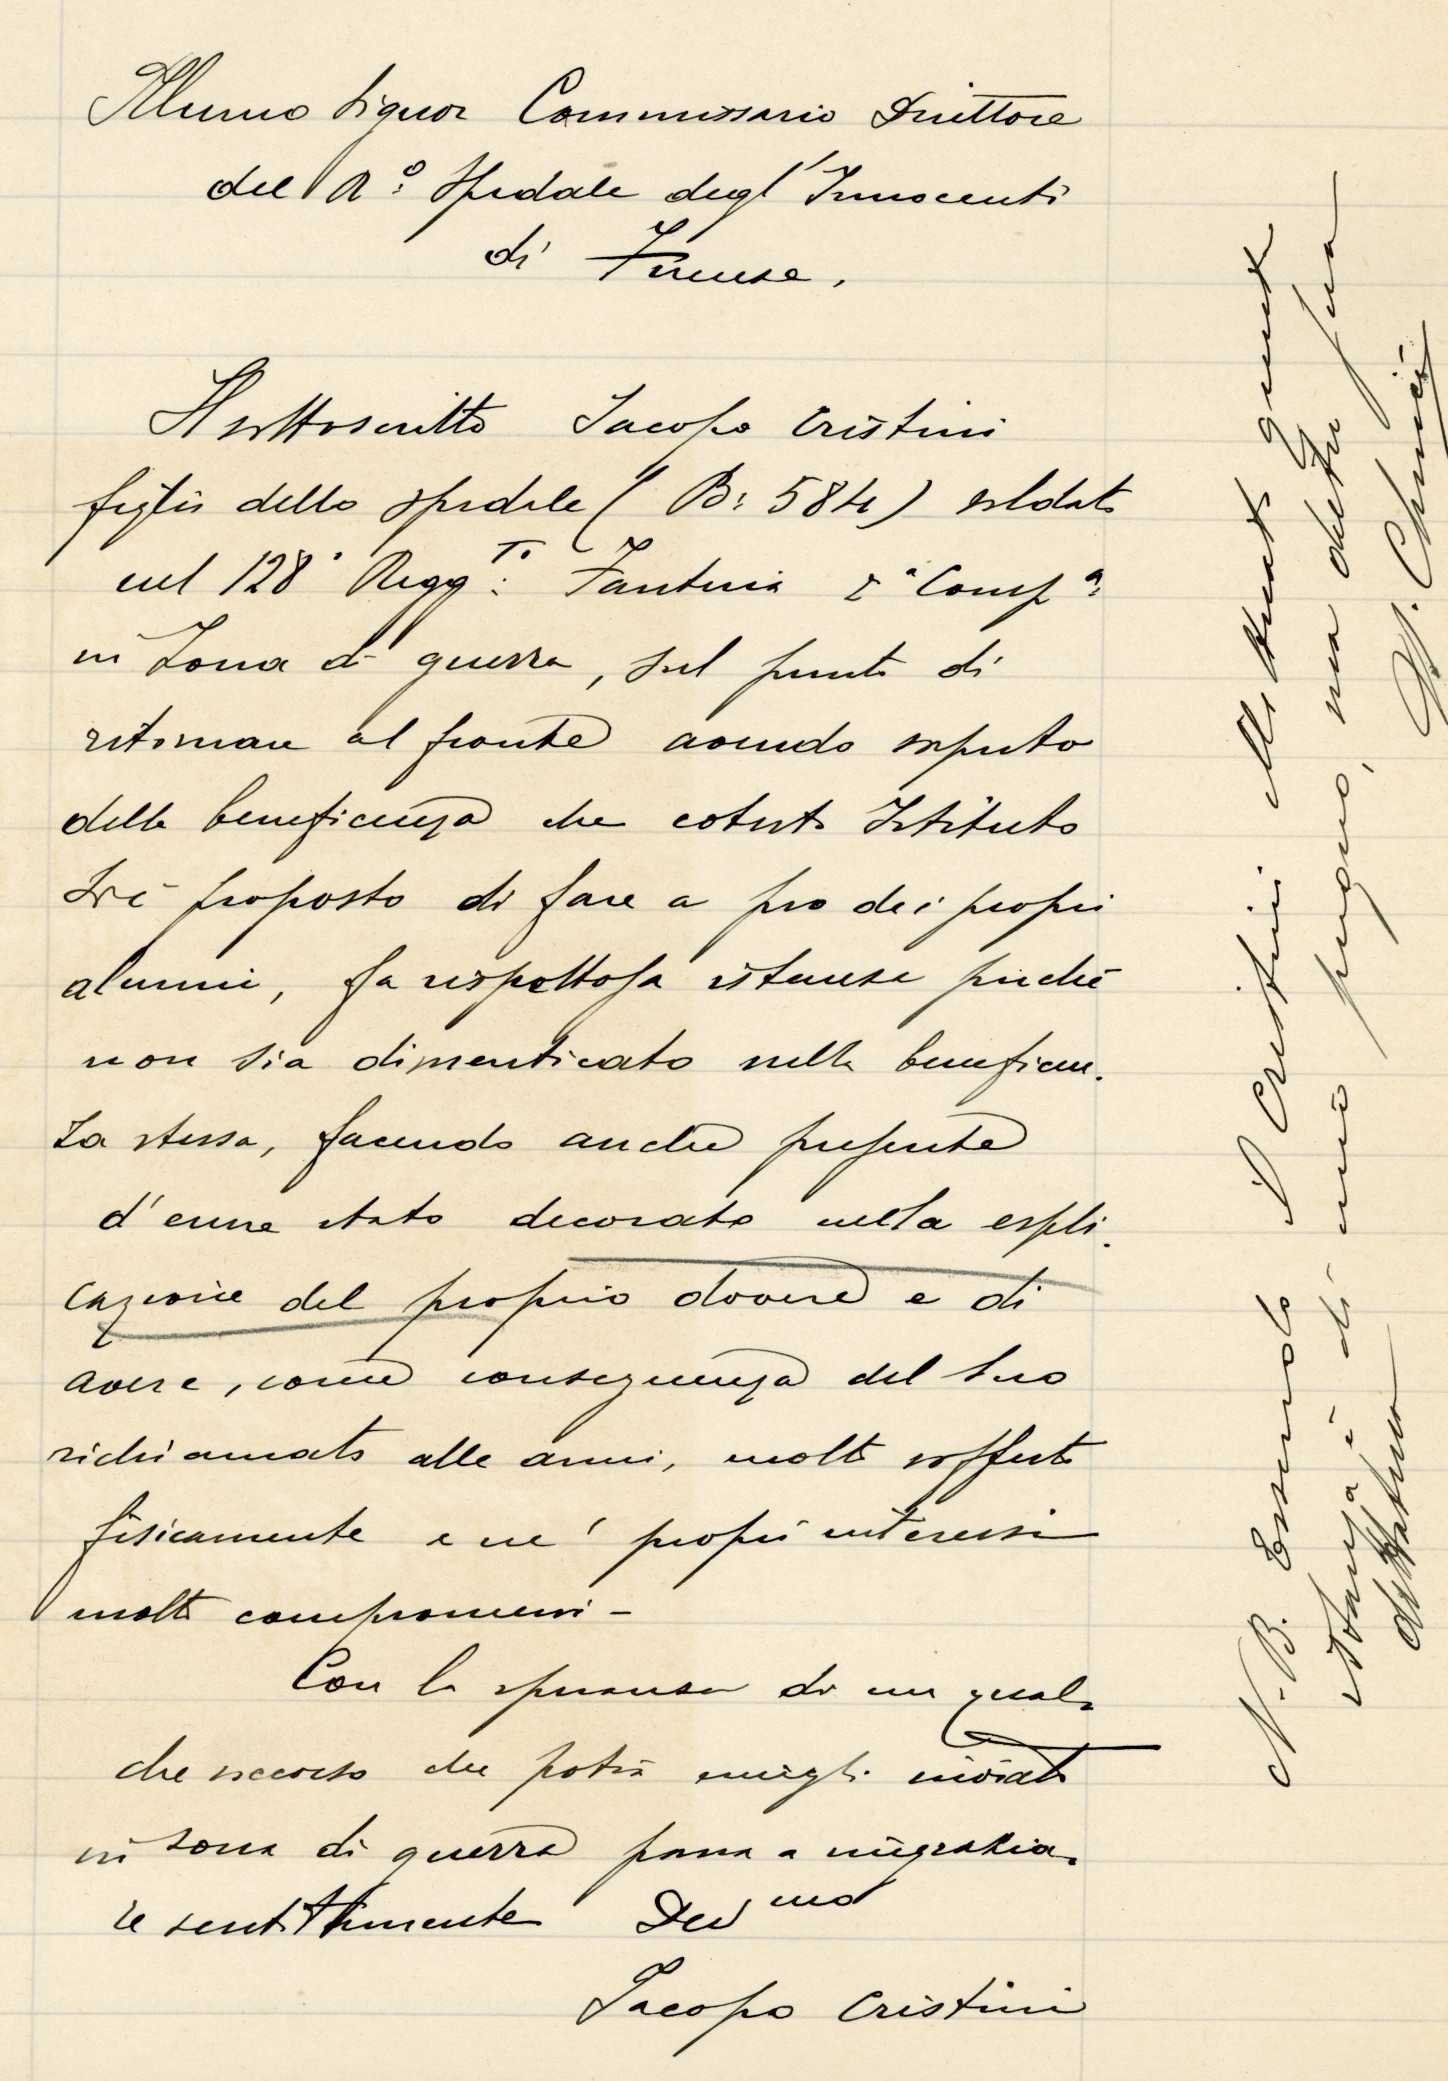 Illmo Signor Commissario Direttore
del R.º Spedale degl'Innocenti
di Firenze.
Il sottoscritto Jacopo Cristini
figlio dello spedale (B: 584) soldato
nel 128° Regg.to Fanteria 2ª Compª
in Zona di guerra, sul punto di
ritornare al fronte avendo saputo
della beneficenza che cotesto Istituto
si è proposto di fare a pro dei propri
alunni, fa rispettosa istanza perchè
non sia dimenticato nella beneficen-
za stessa, facendo anche presente
d'essere stato decorato nella espli-
cazione del proprio dovere e di
avere, come conseguenza del suo
richiamato alle armi, molto sofferto
fisicamente e ne' propri interessi
molto compromessi -
Con la speranza di un qual-
che soccorso che potrà essergli inviato
in zona di guerra passa a ringrazia-
re sentitamente Devmo
Jacopo Cristini
N.B. Essendo il Cristini illetterato quest
istanza è di mio pugno, ma dietro sua
dettatura